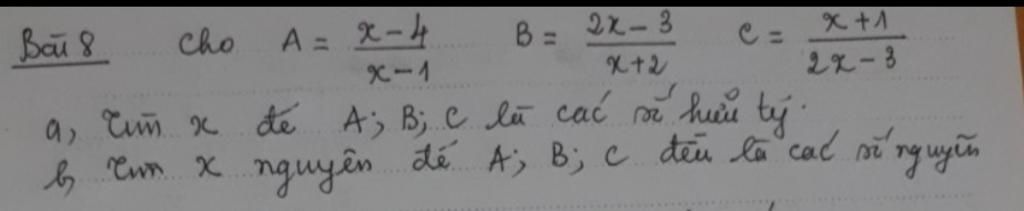 Bài 8 Cho A = \frac{x-4}{x-1} B = \frac{2x-3}{x+2} C = \frac{x+1}{2x-3}
a, Tìm x để A; B; C là các số hữu tỷ.
b, Tìm x nguyên để A; B; C đều là các số nguyên